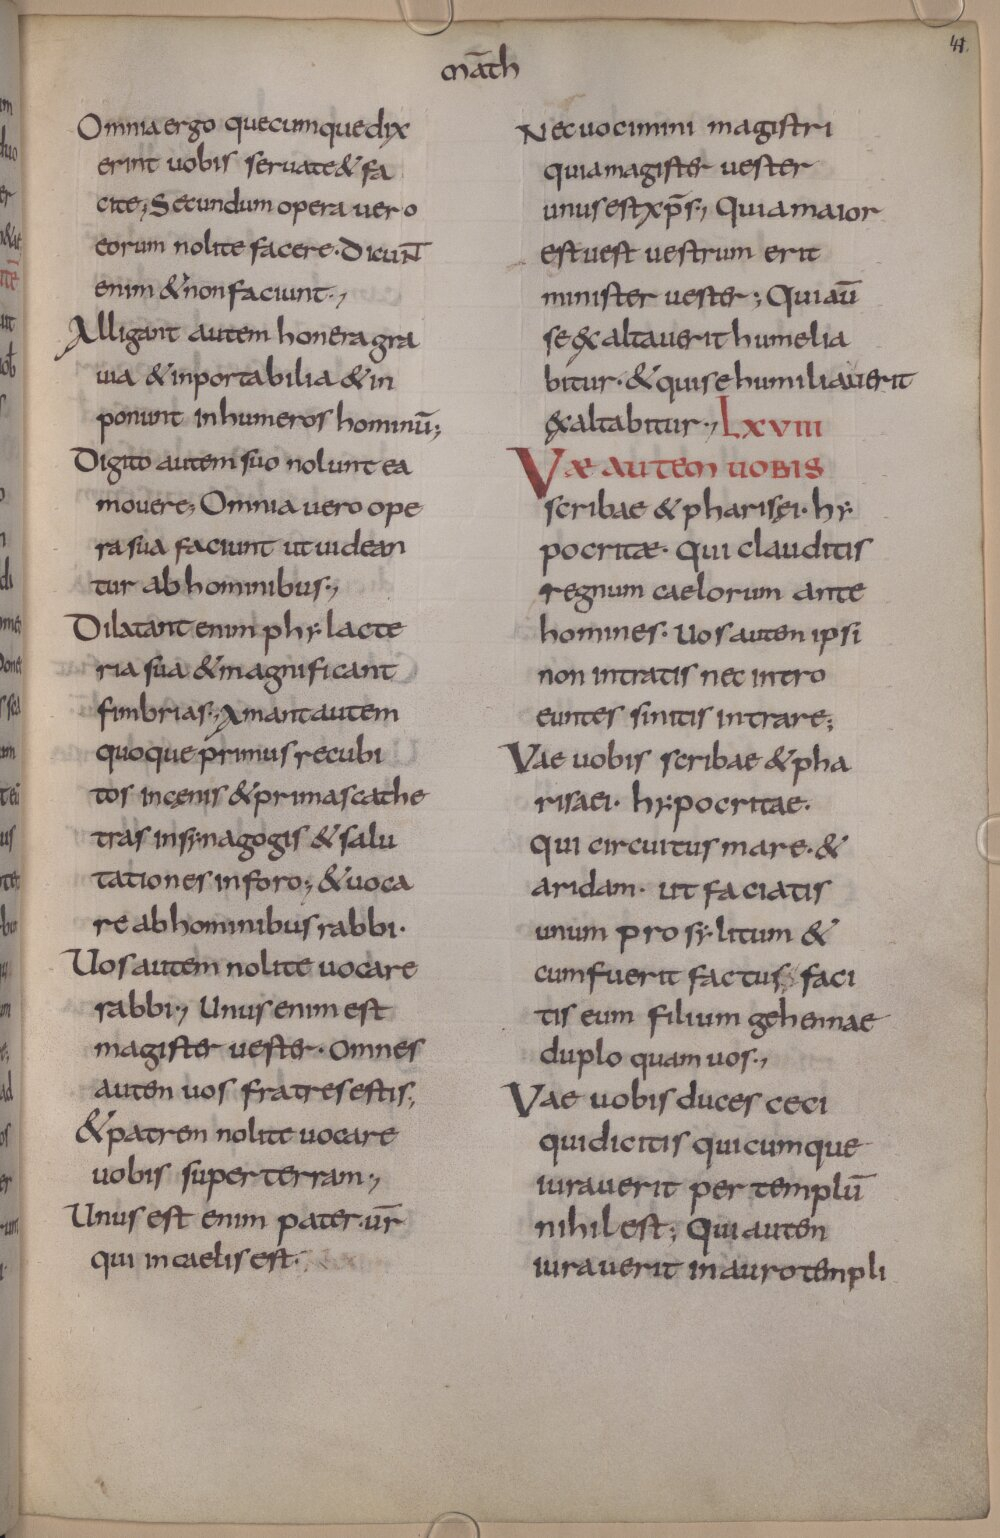 māth
41.
Omnia ergo quecumque dix
erint uobis seruate & fa
cite; Secundum opera uero
eorum nolite facere. Dicun̄t
enim & non faciunt.,
Alligant autem honera gra
uia & inportabilia & in
ponunt in humeros hominū;
Digito autem suo nolunt ea
mouere; Omnia uero ope
ra sua faciunt ut uidean
tur ab hominibus.,
Dilatant enim phylacte
ria sua & magnificant
fimbrias., Amant autem
quoque primus recubi
tos in cęnis & primas cathe
tras in synagogis & salu
tationes in foro; & uoca
re ab hominibus rabbi.
Uos autem nolite uocare
rabbi., Unus enim est
magister uester. Omnes
autem uos fratres estis;
& patrem nolite uocare
uobis super terram.,
Unus est enim pater. ur̄
qui in caelis est.
Nec uocimini magistri
quia magister uester
unus est xp̄s., Quia maior
est uest uestrum erit
minister uester; Qui aū
se exaltauerit humelia
bitur. & qui se humiliauerit
exaltabitur., LXVIII
Væ autem uobis
scribae & pharisęi. hy
pocritæ. Qui clauditis
regnum caelorum ante
homines. Uos autem ipsi
non intratis nec intro
euntes sinitis intrare;
Vae uobis scribae & pha
risaei. hypocritae.
qui circuitus mare. &
aridam. ut faciatis
unum prosylitum &
cum fuerit factus faci
tis eum filium gehennae
duplo quam uos.,
Vae uobis duces ceci
qui dicitis quicumque
iurauerit per templū
nihil est; Qui autem
iurauerit in auro templi